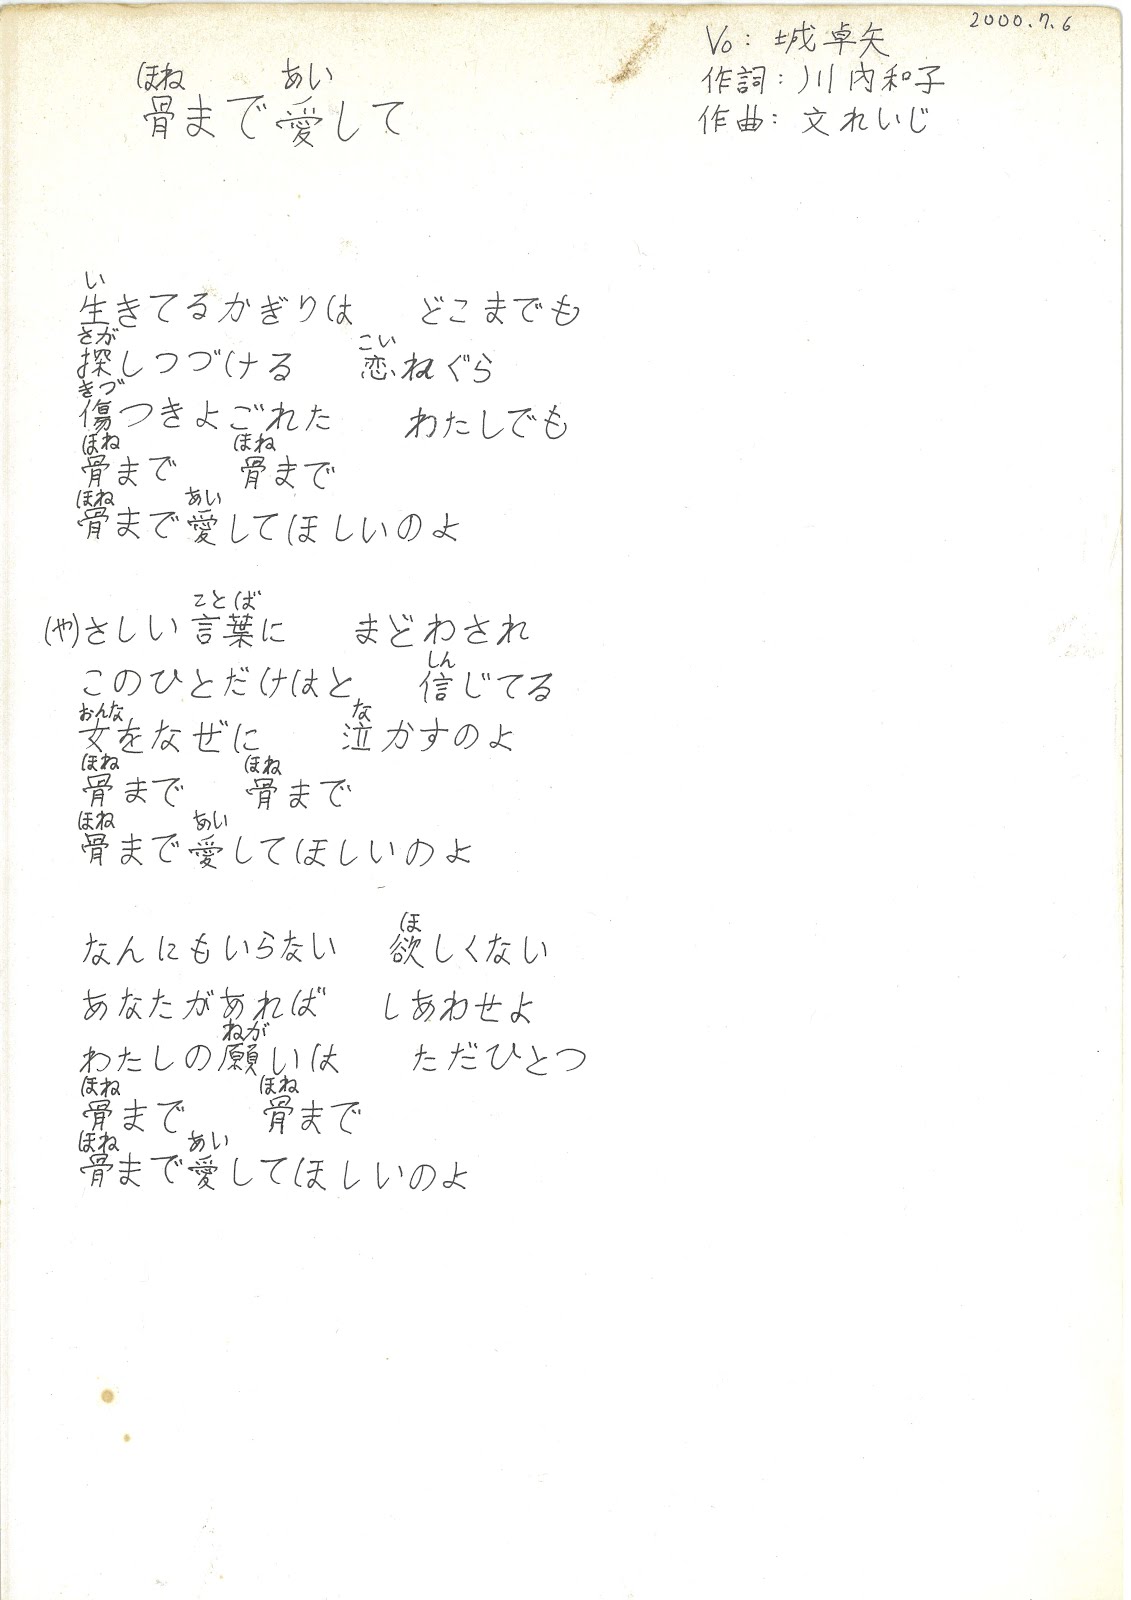 2000.7.6
Vo: 城卓矢
作詞: 川内和子
作曲: 文れいじ
ほね あい
骨まで愛して
い
生きてるかぎりは どこまでも
さが こい
探しつづける 恋ねぐら
きづ
傷つきよごれた わたしでも
ほね ほね
骨まで 骨まで
ほね あい
骨まで愛してほしいのよ
ことば
(や)さしい言葉に まどわされ
しん
このひとだけはと 信じてる
おんな な
女をなぜに 泣かすのよ
ほね ほね
骨まで 骨まで
ほね あい
骨まで愛してほしいのよ
ほ
なんにもいらない 欲しくない
あなたがあれば しあわせよ
ねが
わたしの願いは ただひとつ
ほね ほね
骨まで 骨まで
ほね あい
骨まで愛してほしいのよ